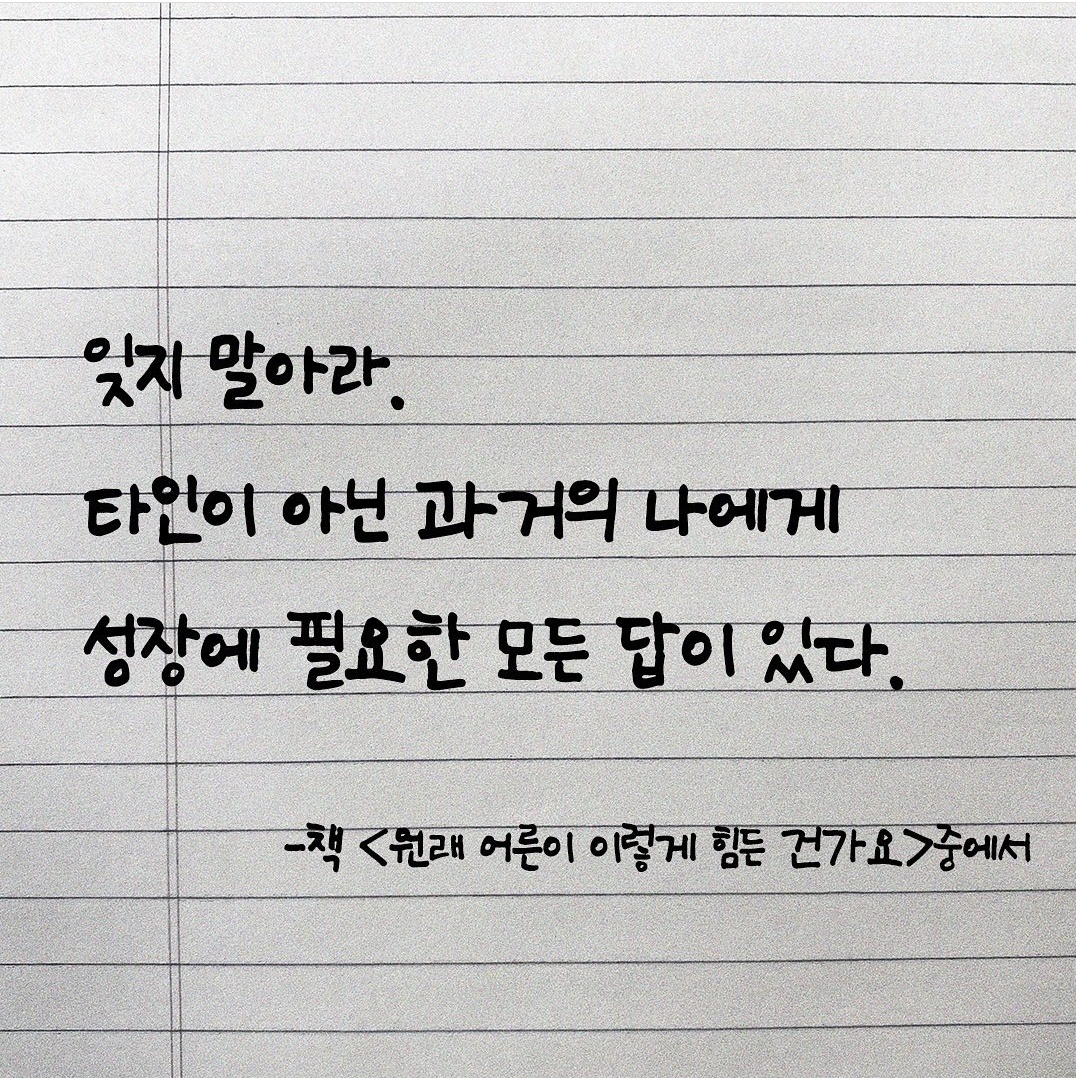 잊지 말아라.
타인이 아닌 과거의 나에게
성장에 필요한 모든 답이 있다.
-책 <원래 어른이 이렇게 힘든 건가요>중에서